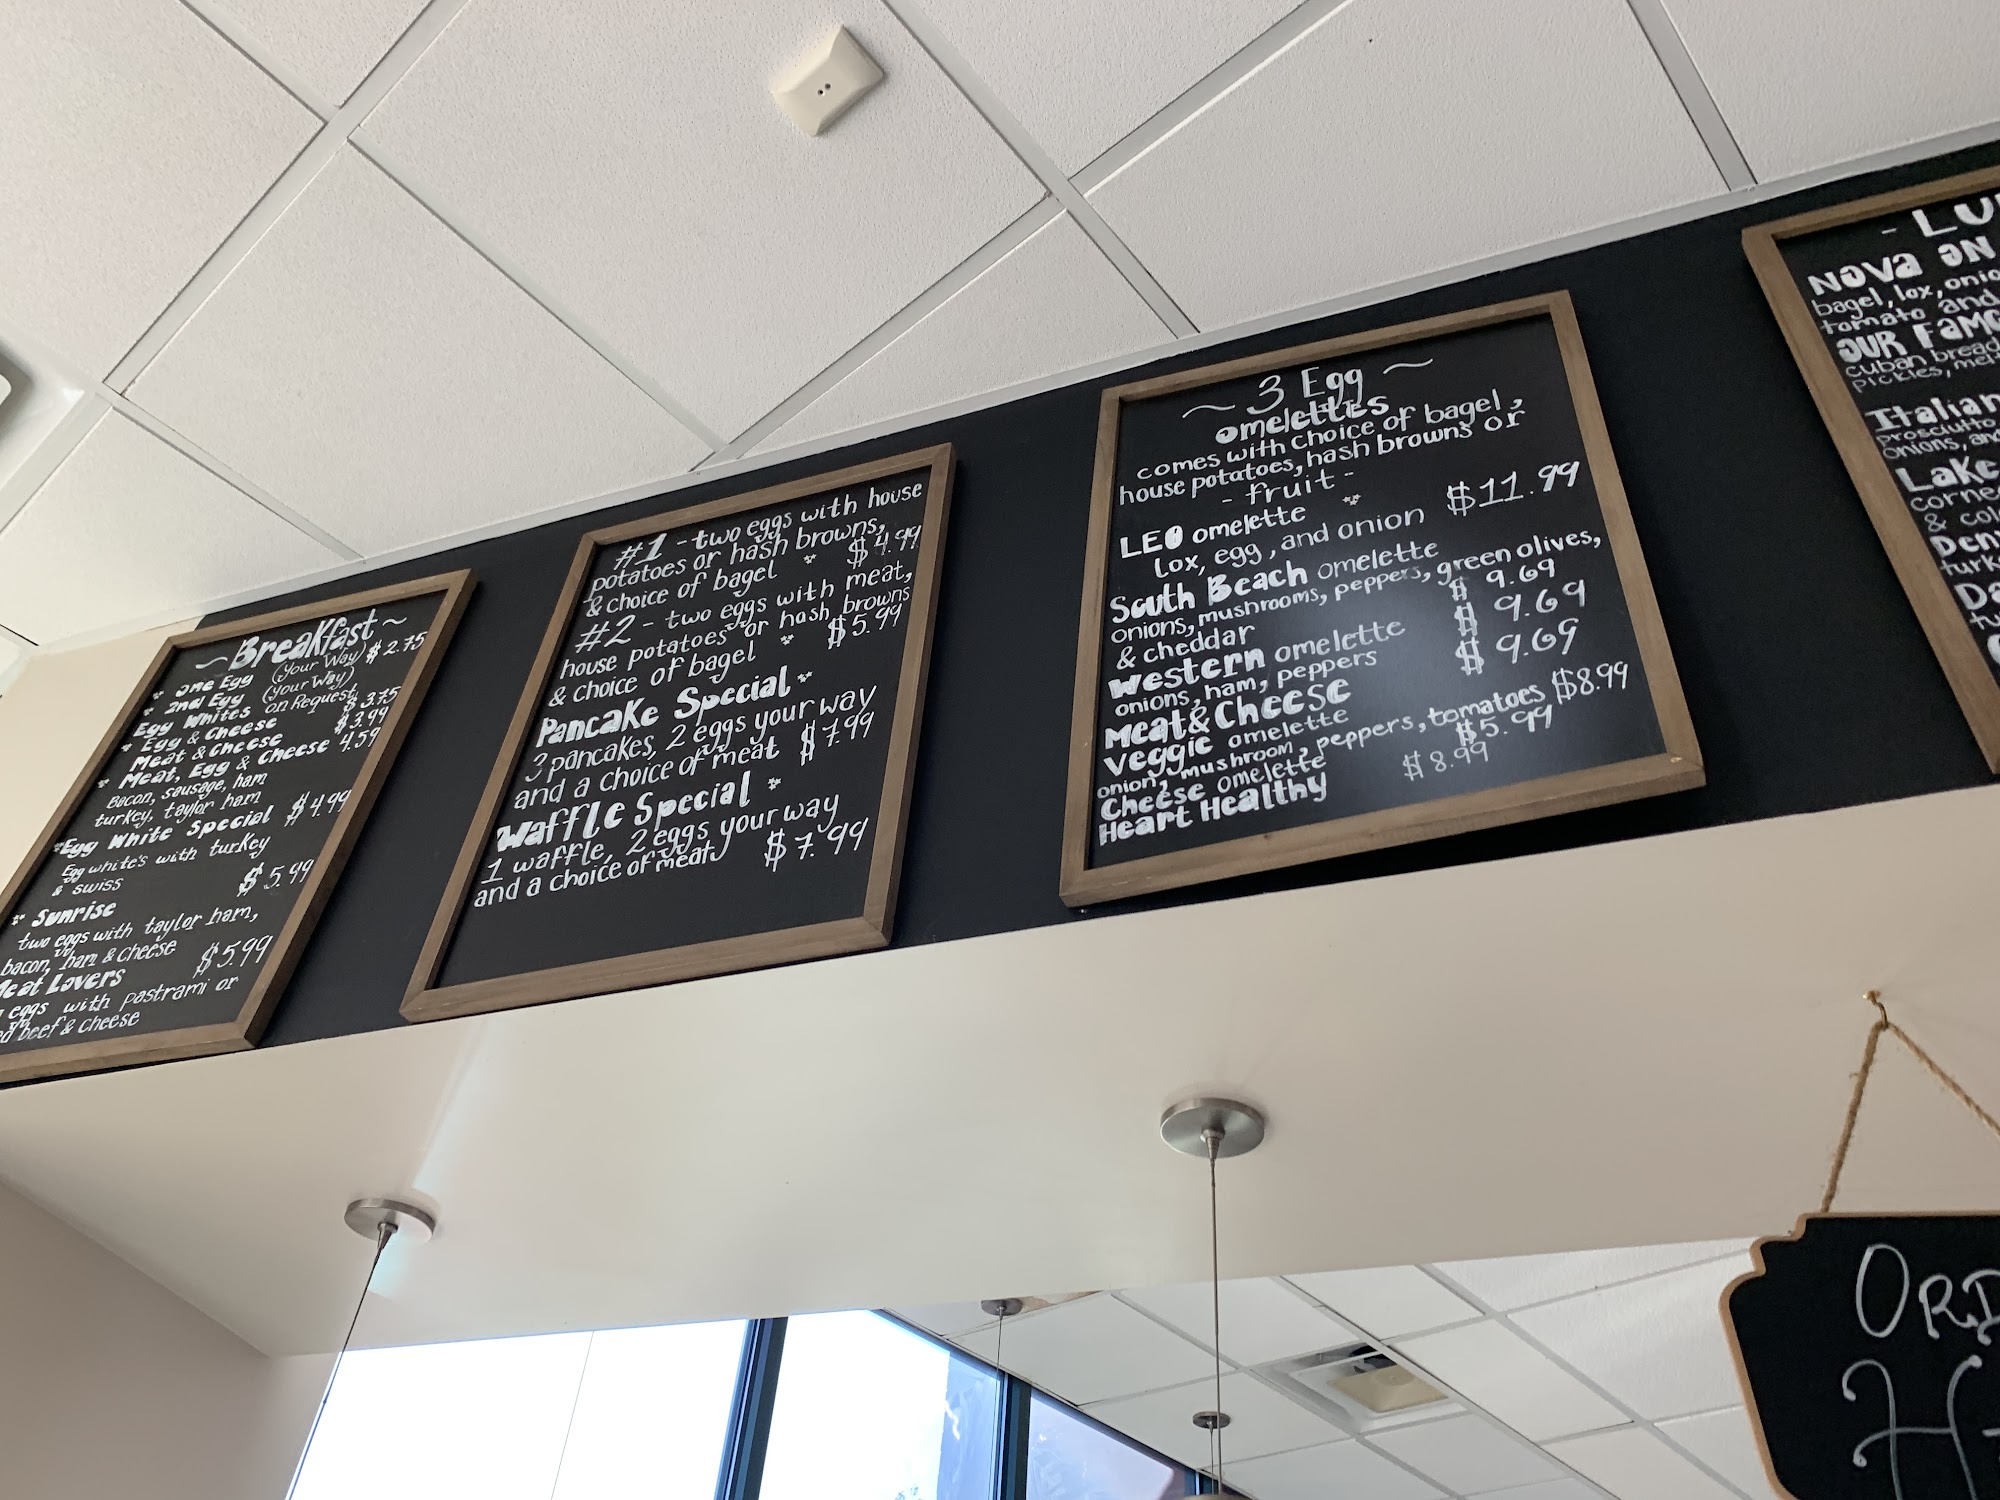 ~ Breakfast ~
* One Egg (your way) $2.75
* 2nd Egg (your way)
Egg Whites on Request
* Egg & Cheese $3.75
Meat & Cheese $3.99
* Meat, Egg & Cheese 4.59
Bacon, sausage, ham
turkey, taylor ham
* Egg White Special $4.99
Egg white's with turkey
& swiss $5.99
* Sunrise
two eggs with taylor ham,
bacon, ham & cheese $5.99
Meat Lovers
eggs with pastrami or
beef & cheese
#1 - two eggs with house
potatoes or hash browns,
& choice of bagel $4.99
#2 - two eggs with meat,
house potatoes or hash browns
& choice of bagel $5.99
Pancake Special
3 pancakes, 2 eggs your way
and a choice of meat $7.99
Waffle Special
1 waffle, 2 eggs your way
and a choice of meat $7.99
~ 3 Egg ~
omelettes
comes with choice of bagel,
house potatoes, hash browns or
- fruit -
LEO omelette
lox, egg, and onion $11.99
South Beach omelette
onions, mushrooms, peppers, green olives,
& cheddar $9.69
Western omelette $9.69
onions, ham, peppers
Meat & Cheese $9.69
Veggie omelette
onion, mushroom, peppers, tomatoes $8.99
Cheese omelette $5.99
Heart Healthy $8.99
Nova on
bagel, lox, onio
tomato and
Our Famo
cuban bread
pickles,
Italian
prosciutto
onions, an
Lake
corne
& col
Den
turk
Da
tu
Ord